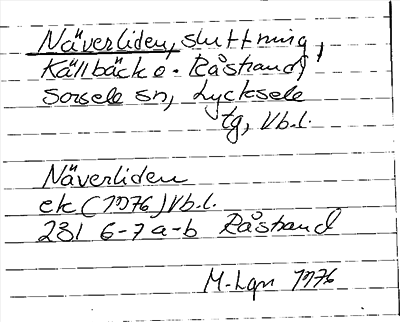 Näverliden, sluttning,
Källbäck o. Råstrand,
Sorsele sn, Lycksele
tg, Vb.l.
Näverliden
ek (1976) Vb.l.
231 6-7 a-b Råstrand
M-Lgn 1976